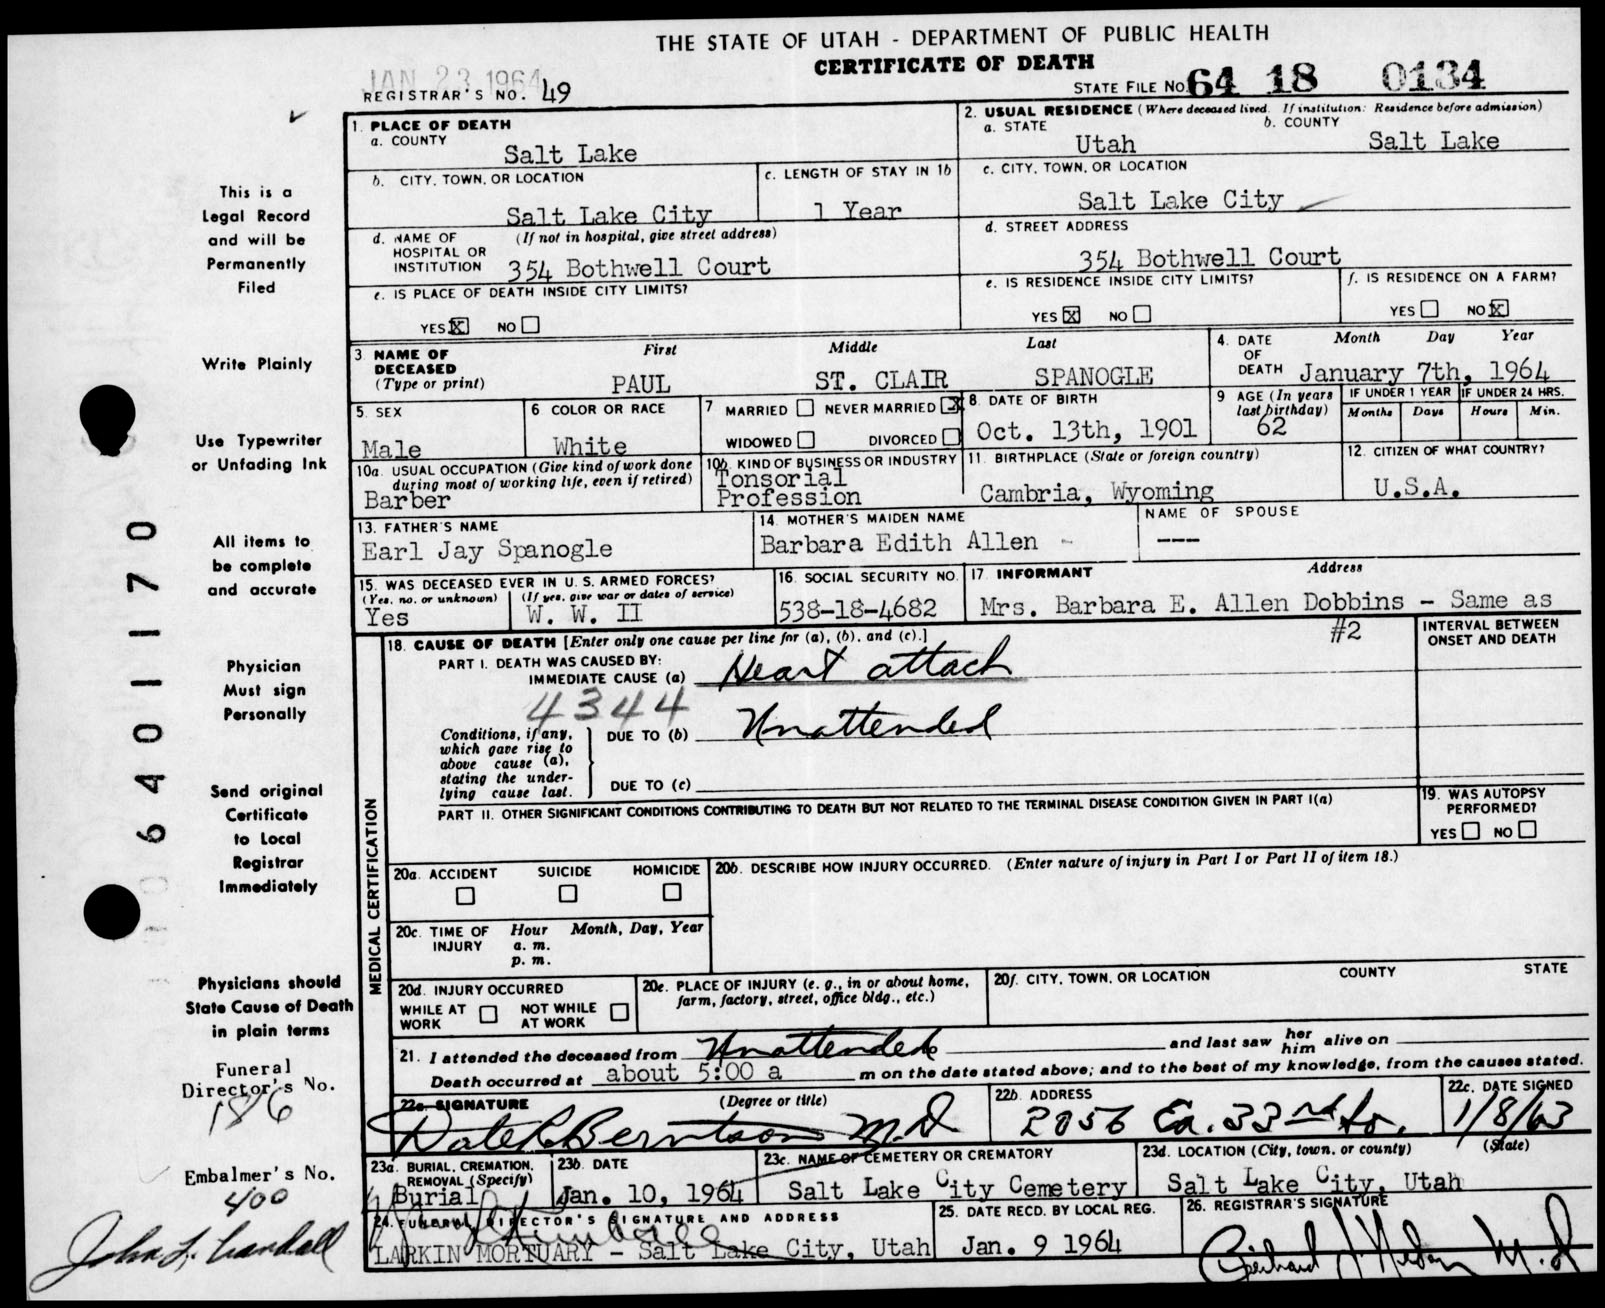 THE STATE OF UTAH - DEPARTMENT OF PUBLIC HEALTH
CERTIFICATE OF DEATH
JAN 23 1964
REGISTRAR'S NO. 49
STATE FILE NO. 64 18 0134
1. PLACE OF DEATH
a. COUNTY
Salt Lake
2. USUAL RESIDENCE (Where deceased lived. If institution: Residence before admission)
a. STATE b. COUNTY
Utah Salt Lake
b. CITY, TOWN, OR LOCATION
Salt Lake City
c. LENGTH OF STAY IN 1b
1 Year
c. CITY, TOWN, OR LOCATION
Salt Lake City
d. NAME OF HOSPITAL OR INSTITUTION (If not in hospital, give street address)
354 Bothwell Court
d. STREET ADDRESS
354 Bothwell Court
e. IS PLACE OF DEATH INSIDE CITY LIMITS?
YES X NO
e. IS RESIDENCE INSIDE CITY LIMITS?
YES X NO
f. IS RESIDENCE ON A FARM?
YES NO X
3 NAME OF DECEASED (Type or print)
First Middle Last
PAUL ST. CLAIR SPANOGLE
4. DATE OF DEATH
Month Day Year
January 7th, 1964
5. SEX
Male
6 COLOR OR RACE
White
7 MARRIED NEVER MARRIED X
WIDOWED DIVORCED
8. DATE OF BIRTH
Oct. 13th, 1901
9 AGE (In years last birthday)
62
IF UNDER 1 YEAR
Months Days
IF UNDER 24 HRS.
Hours Min.
10a. USUAL OCCUPATION (Give kind of work done during most of working life, even if retired)
Barber
10b. KIND OF BUSINESS OR INDUSTRY
Tonsorial
Profession
11. BIRTHPLACE (State or foreign country)
Cambria, Wyoming
12. CITIZEN OF WHAT COUNTRY?
U.S.A.
13. FATHER'S NAME
Earl Jay Spanogle
14. MOTHER'S MAIDEN NAME
Barbara Edith Allen -
NAME OF SPOUSE
---
15. WAS DECEASED EVER IN U. S. ARMED FORCES?
(Yes, no. or unknown) (If yes, give war or dates of service)
Yes W. W. II
16. SOCIAL SECURITY NO.
538-18-4682
17. INFORMANT Address
Mrs. Barbara E. Allen Dobbins - Same as
#2
MEDICAL CERTIFICATION
18. CAUSE OF DEATH [Enter only one cause per line for (a), (b), and (c).]
INTERVAL BETWEEN ONSET AND DEATH
PART I. DEATH WAS CAUSED BY:
IMMEDIATE CAUSE (a) Heart attack
4344
Conditions, if any, which gave rise to above cause (a), stating the underlying cause last.
DUE TO (b) Unattended
DUE TO (c)
PART II. OTHER SIGNIFICANT CONDITIONS CONTRIBUTING TO DEATH BUT NOT RELATED TO THE TERMINAL DISEASE CONDITION GIVEN IN PART I(a)
19. WAS AUTOPSY PERFORMED?
YES NO
20a. ACCIDENT SUICIDE HOMICIDE
20b. DESCRIBE HOW INJURY OCCURRED. (Enter nature of injury in Part I or Part II of item 18.)
20c. TIME OF INJURY Hour a. m. p. m. Month, Day, Year
20d. INJURY OCCURRED
WHILE AT WORK NOT WHILE AT WORK
20e. PLACE OF INJURY (e. g., in or about home, farm, factory, street, office bldg., etc.)
20f. CITY, TOWN, OR LOCATION COUNTY STATE
21. I attended the deceased from Unattended to and last saw her him alive on
Death occurred at about 5:00 a m on the date stated above; and to the best of my knowledge, from the causes stated.
22a. SIGNATURE (Degree or title)
M.D.
22b. ADDRESS
2056 Ea. 33rd So.
22c. DATE SIGNED
1/8/63
23a. BURIAL, CREMATION, REMOVAL (Specify)
Burial
23b. DATE
Jan. 10, 1964
23c. NAME OF CEMETERY OR CREMATORY
Salt Lake City Cemetery
23d. LOCATION (City, town, or county) (State)
Salt Lake City, Utah
24. FUNERAL DIRECTOR'S SIGNATURE AND ADDRESS
LARKIN MORTUARY - Salt Lake City, Utah
25. DATE RECD. BY LOCAL REG.
Jan. 9 1964
26. REGISTRAR'S SIGNATURE
M.D.
This is a
Legal Record
and will be
Permanently
Filed
Write Plainly
Use Typewriter
or Unfading Ink
All items to
be complete
and accurate
Physician
Must sign
Personally
Send original
Certificate
to Local
Registrar
Immediately
Physicians should
State Cause of Death
in plain terms
Funeral
Director's No.
186
Embalmer's No.
400
John L. Crandall
6401170